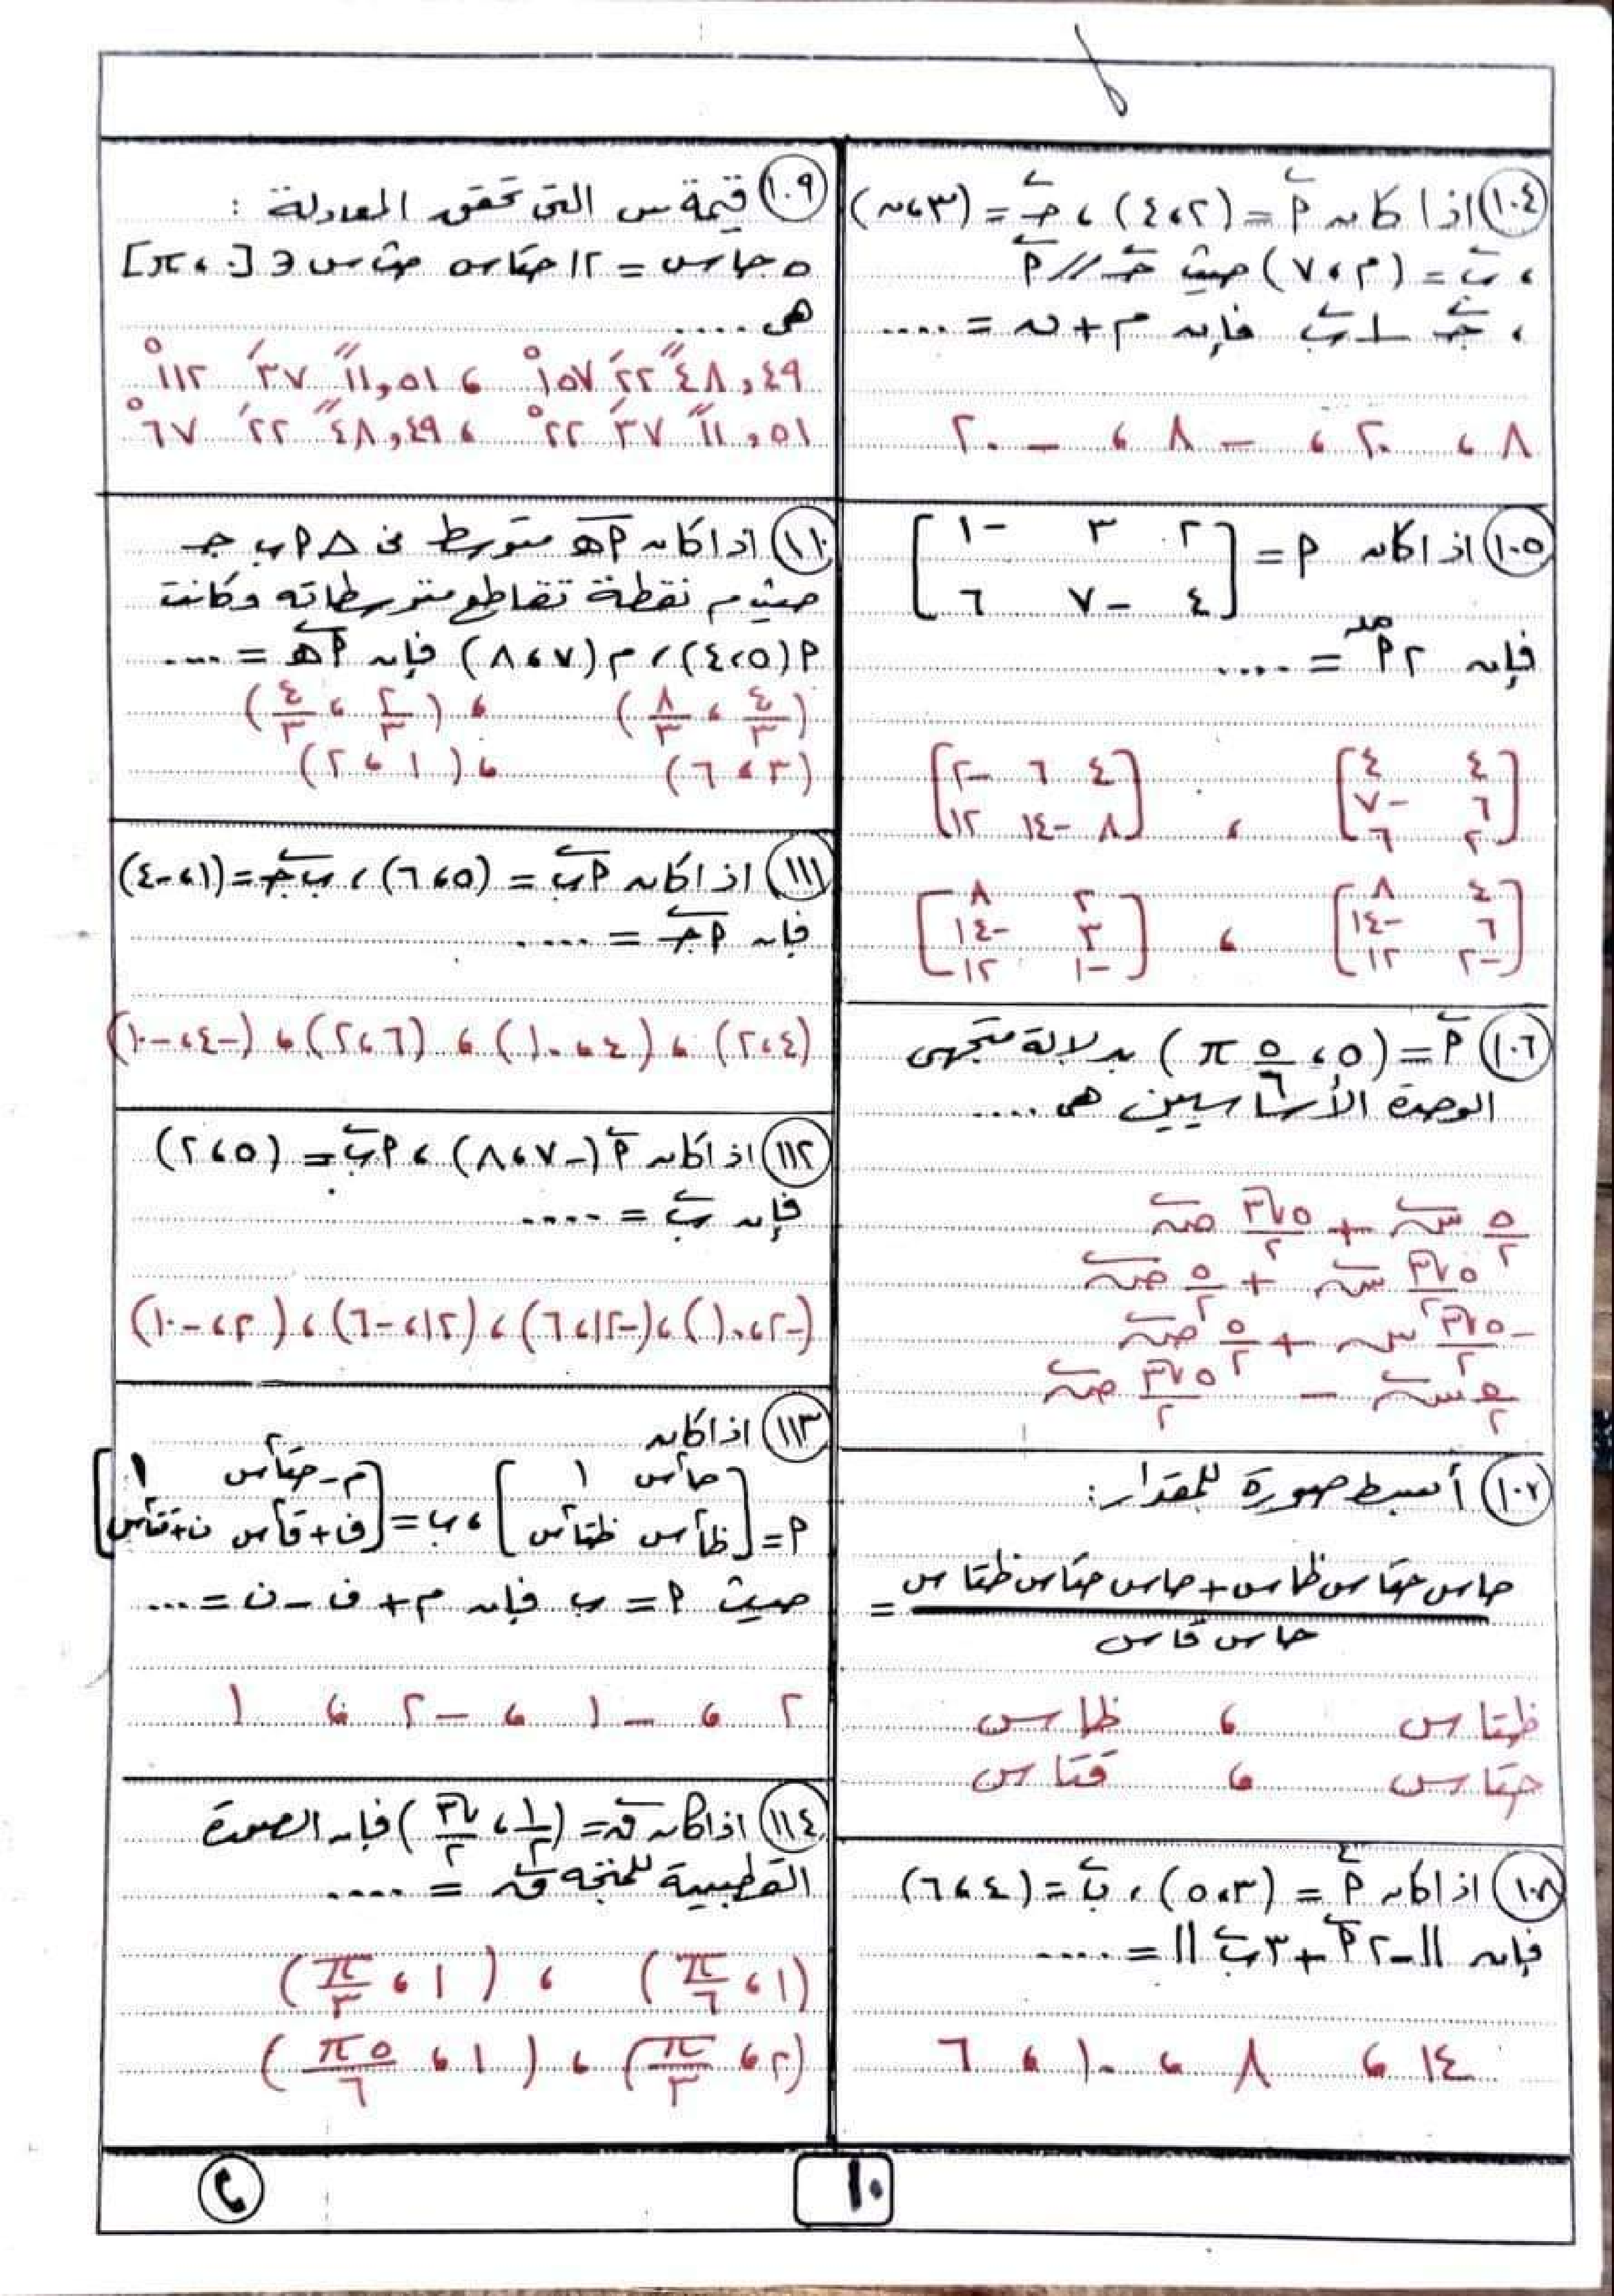 ١٠٤ اذا كان أ = (٢،٤) ، جـ = (٣،ن)
، ب = (م،٧) حيث جـ // أ
، جـ ⊥ ب فإن م + ن = ....
٨ ، ٢٠ ، -٨ ، -٢٠
١٠٥ اذا كان أ = [٢ ٣ -١
٤ -٧ ٦]
فإن ٢أمد = ....
[٤ ٤ ، [٤ ٦ -٢
٦ -٧ ٨ -١٤ ١٢]
٢ ٦]
[٤ ٨ ، [٢ ٨
٦ -١٤ ٣ -١٤
-٢ ١٢] -١ ١٢]
١٠٦ أ = (٥، ٥/٦ π) بدلالة متجهى
الوحدة الأساسيين هى ....
٥/٢ س + ٥√٣/٢ ص
٥√٣/٢ س + ٥/٢ ص
-٥√٣/٢ س + ٥/٢ ص
٥/٢ س - ٥√٣/٢ ص
١٠٧ أبسط صورة للمقدار:
حاس حتاس ظاس + حاس حتاس ظتاس =
حاس قاس
ظتاس ، ظاس
حتاس ، قتاس
١٠٨ اذا كان أ = (٣،٥) ، ب = (٤،٦)
فإن ||-٢أ + ٣ب|| = ....
١٤ ، ٨ ، ١٠ ، ٦
١٠٩ قيمة س التى تحقق المعادلة :
٥ حاس = ١٢ حتاس حيث س ∈ ]٠، π]
هى ....
٤٨,٤٩ً ٢٢َ ١٥٧° ، ١١,٥١ً ٣٧َ ١١٢°
١١,٥١ً ٣٧َ ٢٢° ، ٤٨,٤٩ً ٢٢َ ٦٧°
١١٠ اذا كان أهـ متوسط فى Δ أ ب جـ
حيث م نقطة تقاطع متوسطاته وكانت
أ(٥،٤) ، م(٧،٨) فإن أهـ = ....
(٤/٣ ، ٨/٣) ، (٢/٣ ، ٤/٣)
(٣،٦) ، (١،٢)
١١١ اذا كان أب = (٥،٦) ، ب جـ = (١،-٤)
فإن أجـ = ....
(٤،٢) ، (٤،١٠) ، (٦،٢) ، (-٤،-١٠)
١١٢ اذا كان أ(-٧،٨) ، أب = (٥،٢)
فإن ب = ....
(-٢،١٠) ، (-١٢،٦) ، (١٢،-٦) ، (٢،-١٠)
١١٣ اذا كان
أ = [حا²س ١ ، ب = [م-حتا²س ١
ظا²س ظتا²س] ف+قا²س ن+قتا²س]
حيث أ = ب فإن م + ف - ن = ...
٢ ، -١ ، -٢ ، ١
١١٤ اذا كان ق = (١/٢ ، √٣/٢) فإن الصورة
القطبية للمتجه ق = ....
(١، π/٦) ، (١، π/٣)
(٢، π/٣) ، (١، ٥π/٦)
١٠